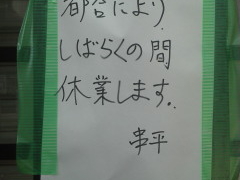 都合により
しばらくの間
休業します。
串平